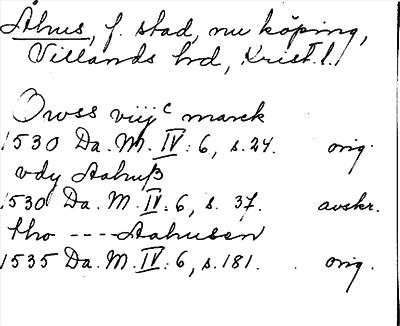 Åhus, f. stad, nu köping,
Villands hd, Krist. l.
Owss viijᶜ marck
1530 Da. M. IV: 6, s. 24. orig.
vdy Aahuß
1530 Da. M. IV: 6, s. 37. avskr.
tho ---- Aahusen
1535 Da. M. IV: 6, s. 181. orig.